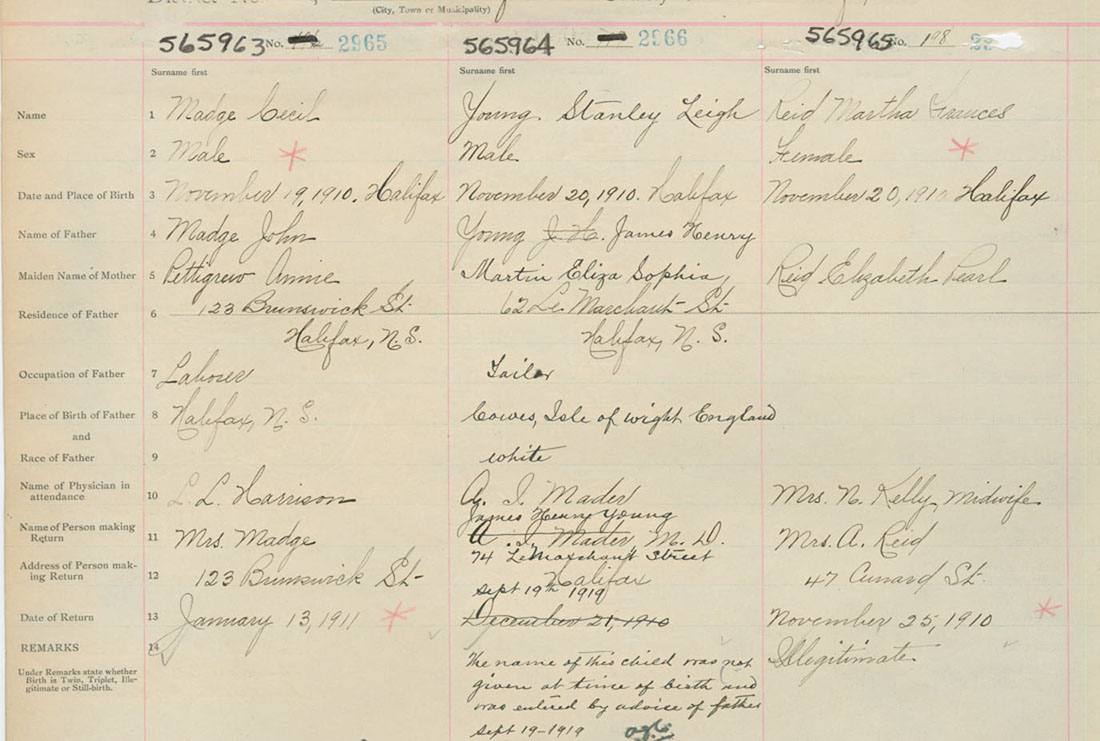 (City, Town or Municipality)
565963 No. 2965 565964 No. 2966 565965 No. 198
Surname first Surname first Surname first
Name 1 Madge Cecil Young. Stanley Leigh Reid Martha Frances
Sex 2 Male Male Female
Date and Place of Birth 3 November 19, 1910. Halifax November 20, 1910. Halifax November 20, 1910 Halifax
Name of Father 4 Madge John Young J. H. James Henry
Maiden Name of Mother 5 Pettigrew Annie Martin Eliza Sophia Reid Elizabeth Pearl
Residence of Father 6 123 Brunswick St. 62 Le Marchant St.
Halifax, N.S. Halifax, N.S.
Occupation of Father 7 Laborer Tailor
Place of Birth of Father 8 Halifax, N.S. Cowes, Isle of wight England
and
Race of Father 9 white
Name of Physician in
attendance 10 L. L. Harrison A. I. Mader Mrs. N. Kelly, Midwife
James Henry Young
Name of Person making
Return 11 Mrs. Madge A. I. Mader M. D. Mrs. A. Reid
74 LeMarchant Street
Address of Person mak-
ing Return 12 123 Brunswick St. Halifax 47 Cunard St.
Sept 19th 1919
Date of Return 13 January 13, 1911 December 21, 1910 November 25, 1910
REMARKS 14 Illegitimate
Under Remarks state whether
Birth is Twin, Triplet, Ille-
gitimate or Still-birth.
The name of this child was not
given at time of birth and
was entered by advise of father
Sept 19-1919